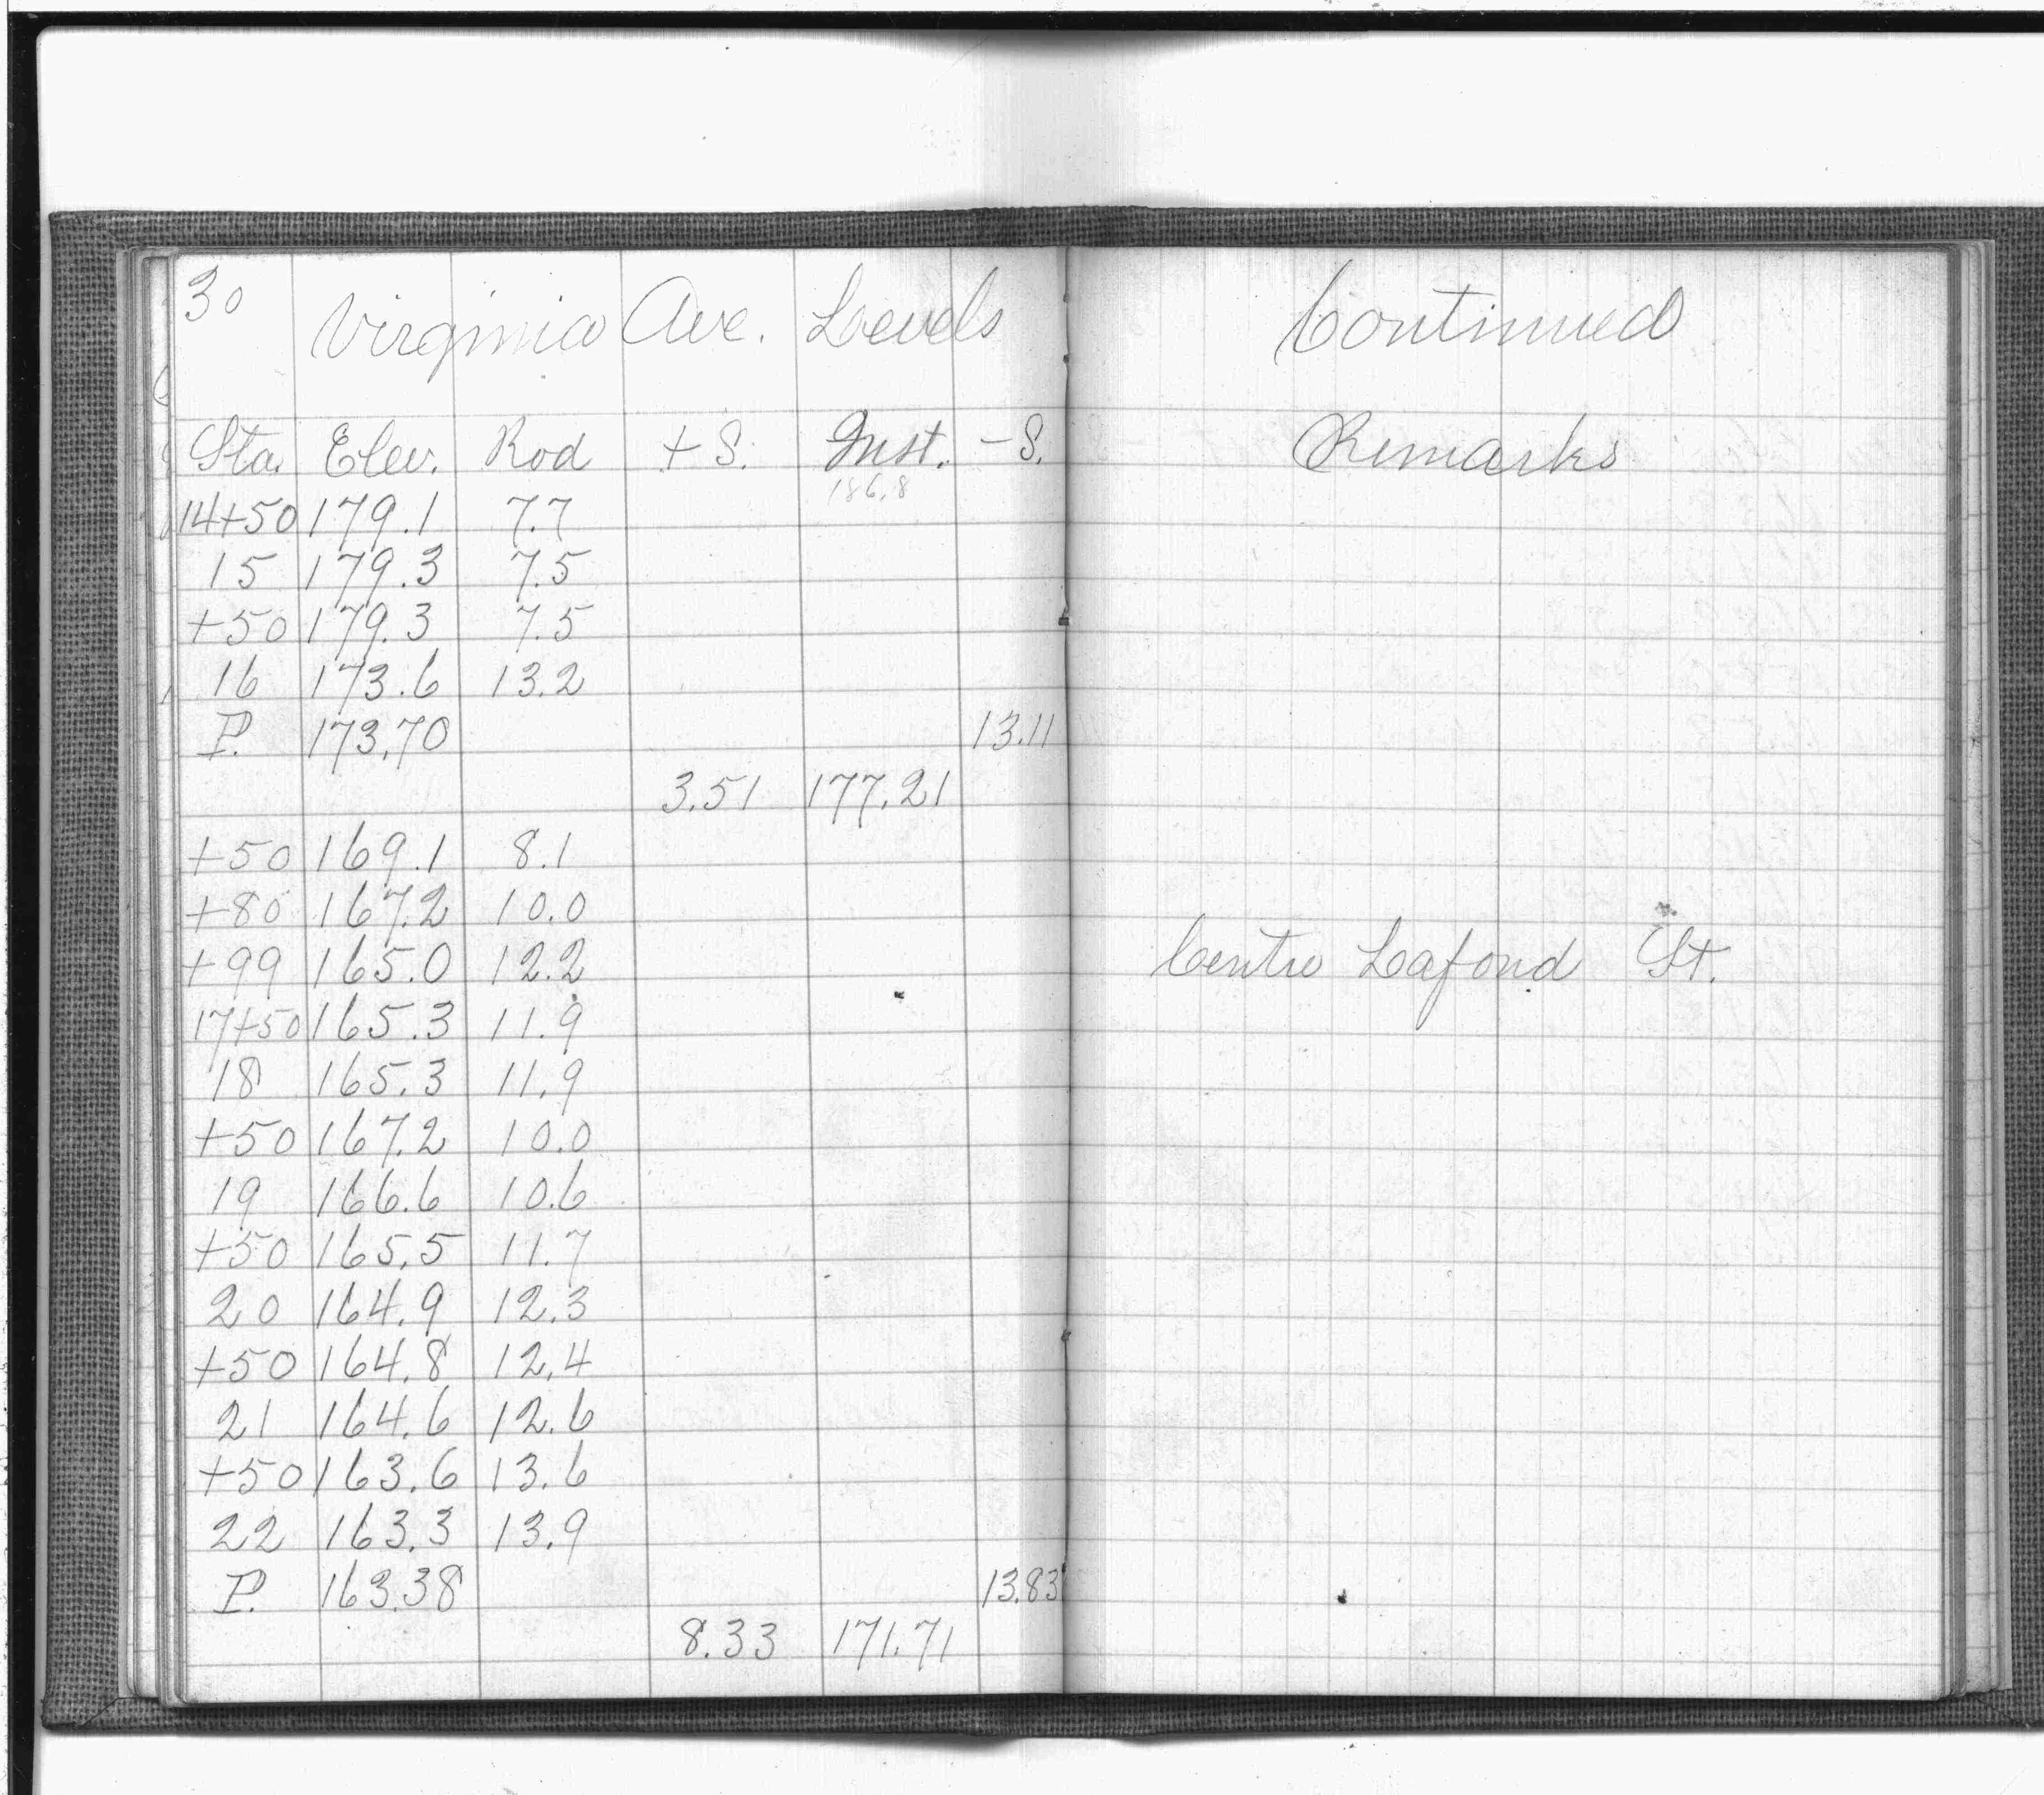 30
Virginia Ave. Levels Continued
Sta. Elev. Rod + S. Inst. - S. Remarks
186.8
14+50 179.1 7.7
15 179.3 7.5
+50 179.3 7.5
16 173.6 13.2
P. 173.70 13.11
3.51 177.21
+50 169.1 8.1
+80 167.2 10.0
+99 165.0 12.2 Centre Lafond St.
17+50 165.3 11.9
18 165.3 11.9
+50 167.2 10.0
19 166.6 10.6
+50 165.5 11.7
20 164.9 12.3
+50 164.8 12.4
21 164.6 12.6
+50 163.6 13.6
22 163.3 13.9
P. 163.38 13.83
8.33 171.71